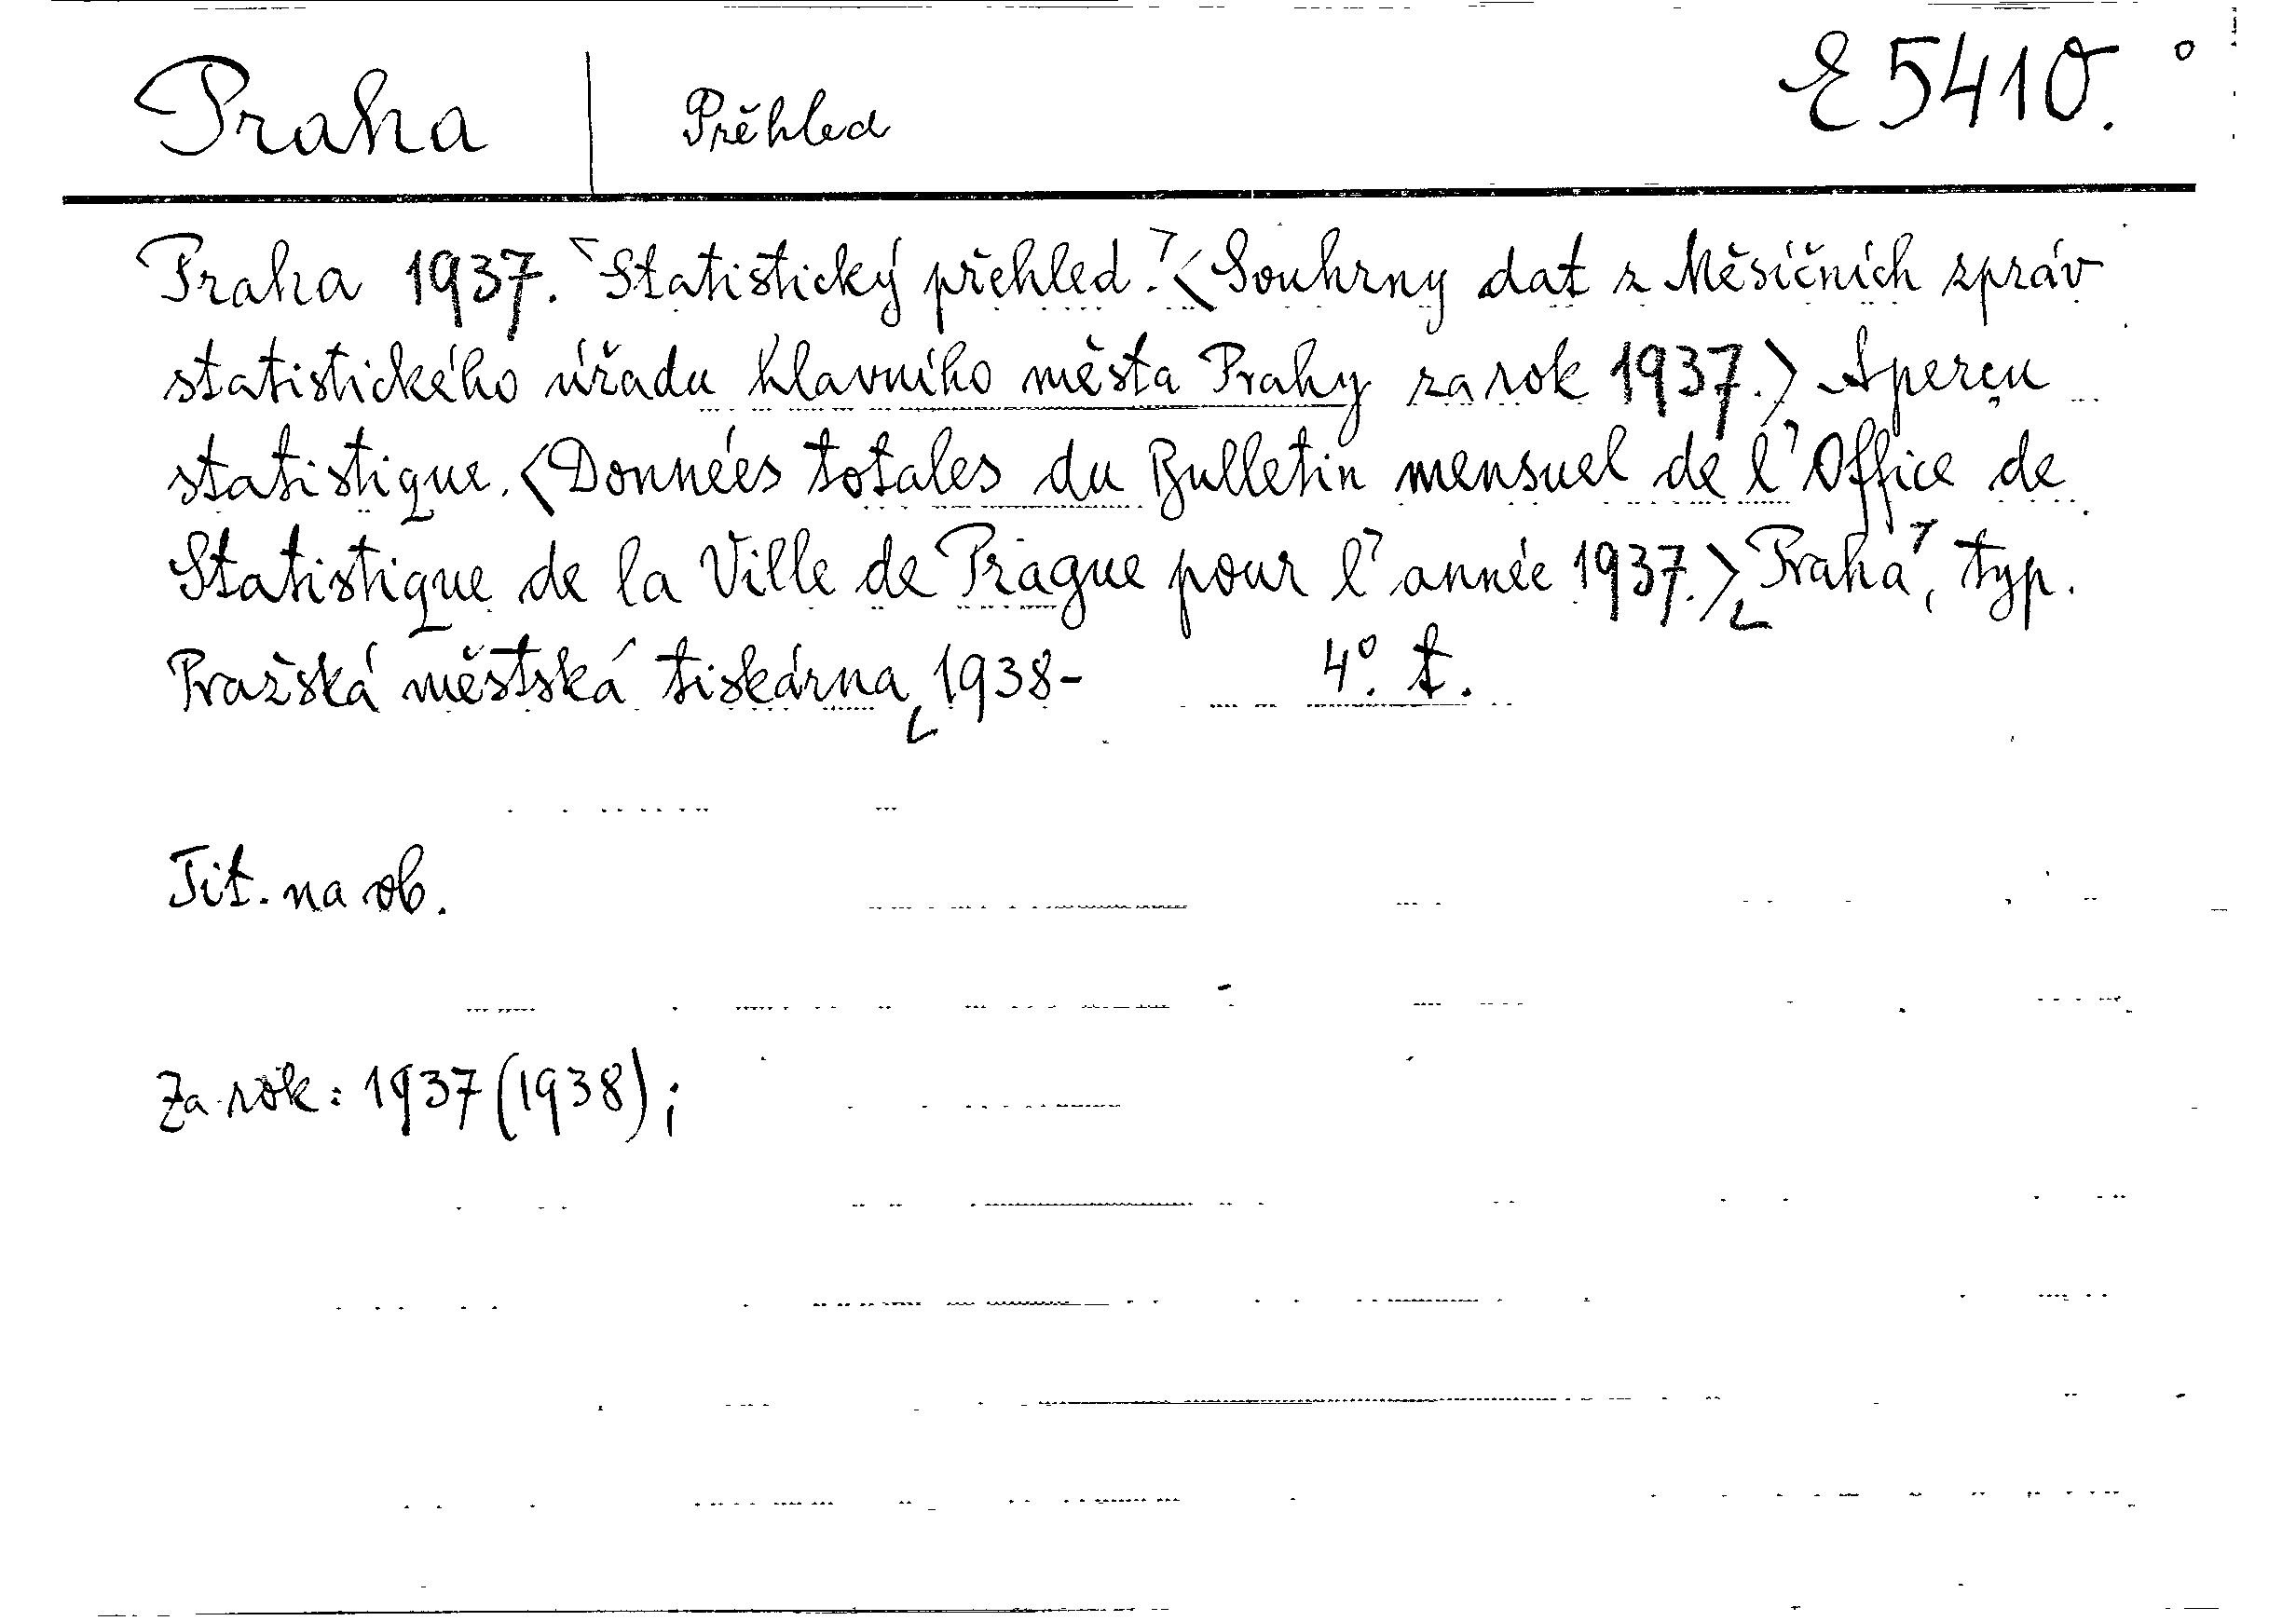 Praha | Přehled E 5410.
Praha 1937. Statistický přehled. <Souhrny dat z Měsíčních zpráv
statistického úřadu hlavního města Prahy za rok 1937.> Aperçu
statistique. <Données totales du Bulletin mensuel de l'Office de
Statistique de la Ville de Prague pour l'année 1937.> Praha, typ.
Pražská městská tiskárna 1938- 4°. t.
Tit. na ob.
Za rok: 1937 (1938);